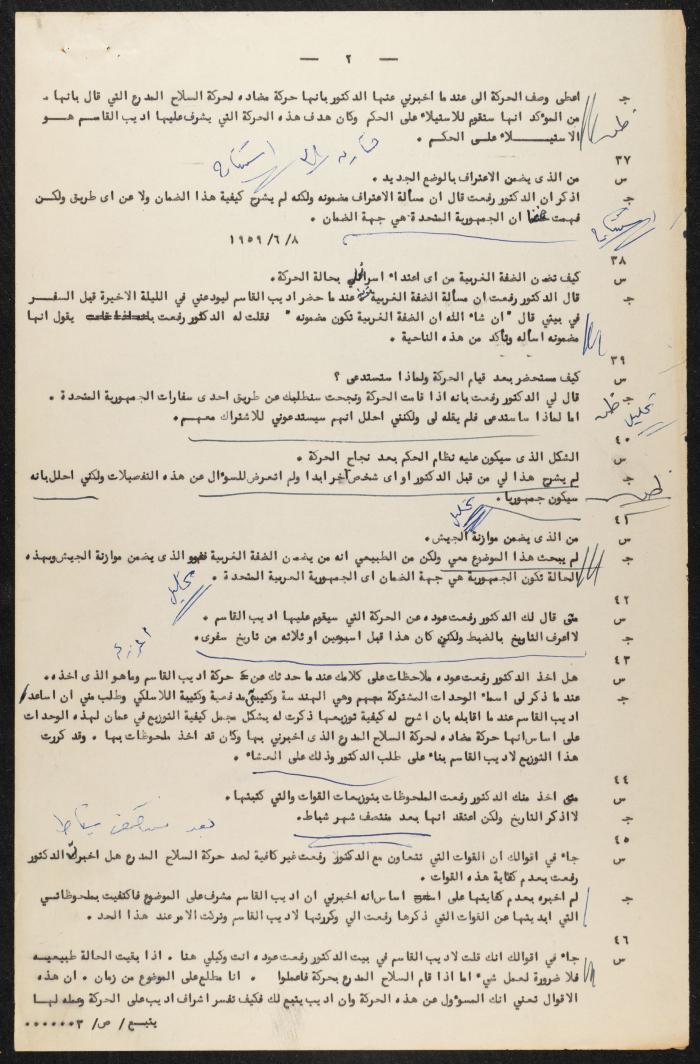 — ٢ —
ج اعطى وصف الحركة الى عندما اخبرني عنها الدكتور بانها حركة مضاده لحركة السلاح المدرع التي قال بانها
من المؤكد انها ستقوم للاستيلاء على الحكم وكان هدف هذه الحركة التي يشرف عليها اديب القاسم هو
الاستيلاء على الحكم .
ظن
استنتاج
٣٧
س من الذى يضمن الاعتراف بالوضع الجديد .
ج اذكر ان الدكتور رفعت قال ان مسألة الاعتراف مضمونه ولكنه لم يشرح كيفية هذا الضمان ولا عن اى طريق ولكن
فهمت ان الجمهورية المتحدة هي جهة الضمان .
استنتاج
١٩٥٩/٦/٨
٣٨
س كيف تضمن الضفة الغربية من اى اعتداء اسرائيلي بحالة الحركة.
ج قال الدكتور رفعت ان مسألة الضفة الغربية عندما حضر اديب القاسم ليودعني في الليلة الاخيرة قبل السفر
في بيتي قال " ان شاء الله ان الضفة الغربية تكون مضمونه " فقلت له الدكتور رفعت يقول انها
مضمونه اسأله وتأكد من هذه الناحية .
٣٩
س كيف ستحضر بعد قيام الحركة ولماذا ستستدعى ؟
ج قال لي الدكتور رفعت بانه اذا قامت الحركة ونجحت سنطلبك عن طريق احدى سفارات الجمهورية المتحدة .
اما لماذا ساستدعى فلم يقله لى ولكنني احلل انهم سيستدعوني للاشتراك معهم.
ظن
تحليل
٤٠
س الشكل الذى سيكون عليه نظام الحكم بعد نجاح الحركة .
ج لم يشرح هذا لي من قبل الدكتور او اى شخص آخر ابدا ولم اتعرض للسؤال عن هذه التفصيلات ولكني احلل بانه
سيكون جمهوريا.
ظن
تحليل
٤١
س من الذى يضمن موازنة الجيش.
ج لم يبحث هذا الموضوع معي ولكن من الطبيعي انه من يضمن الضفة الغربية الذى يضمن موازنة الجيش وبهذه
الحالة تكون الجمهورية هي جهة الضمان اى الجمهورية العربية المتحدة .
تحليل
٤٢
س متى قال لك الدكتور رفعت عوده عن الحركة التي سيقوم عليها اديب القاسم .
ج لا اعرف التاريخ بالضبط ولكن كان هذا قبل اسبوعين او ثلاثه من تاريخ سفرى.
٤٣
س هل اخذ الدكتور رفعت عوده ملاحظات على كلامك عندما حدثك عن حركة اديب القاسم وما هو الذى اخذه.
ج عندما ذكر لى اسماء الوحدات المشتركة معهم وهي الهندسة وكتيبتي مدفعية وكتيبة اللاسلكي وطلب مني ان اساعد
اديب القاسم عندما اقابله بان اشرح له كيفية توزيعها ذكرت له بشكل مجمل كيفية التوزيع في عمان لهذه الوحدات
على اساس انها حركة مضاده لحركة السلاح المدرع الذى اخبرني بها وكان قد اخذ ملحوظات بها . وقد كررت
هذا التوزيع لاديب القاسم بناء على طلب الدكتور وذلك على العشاء .
٤٤
س متى اخذ منك الدكتور رفعت الملحوظات بتوزيعات القوات والتي كتبتها.
ج لا اذكر التاريخ ولكن اعتقد انها بعد منتصف شهر شباط.
بعد منتصف شباط
٤٥
س جاء في اقوالك ان القوات التي تتعاون مع الدكتور رفعت غير كافية لصد حركة السلاح المدرع هل اخبرك الدكتور
رفعت بعدم كفاية هذه القوات .
ج لم اخبره بعدم كفايتها على اساس انه اخبرني ان اديب القاسم مشرف على الموضوع فاكتفيت بملحوظاتي
التي ابديتها عن القوات التي ذكرها رفعت الي وكررتها لاديب القاسم وتركت الامر عند هذا الحد .
٤٦
س جاء في اقوالك انك قلت لاديب القاسم في بيت الدكتور رفعت عوده انت وكيلي هنا . اذا بقيت الحالة طبيعيه
فلا ضرورة لعمل شيء اما اذا قام السلاح المدرع بحركة فاعملوا . انا مطلع على الموضوع من زمان . ان هذه
الاقوال تعني انك المسؤول عن هذه الحركة وان اديب يتبع لك فكيف تفسر اشراف اديب على الحركة وعمله لها
يتبع / ص/ ٣٠٠٠٠٠٠